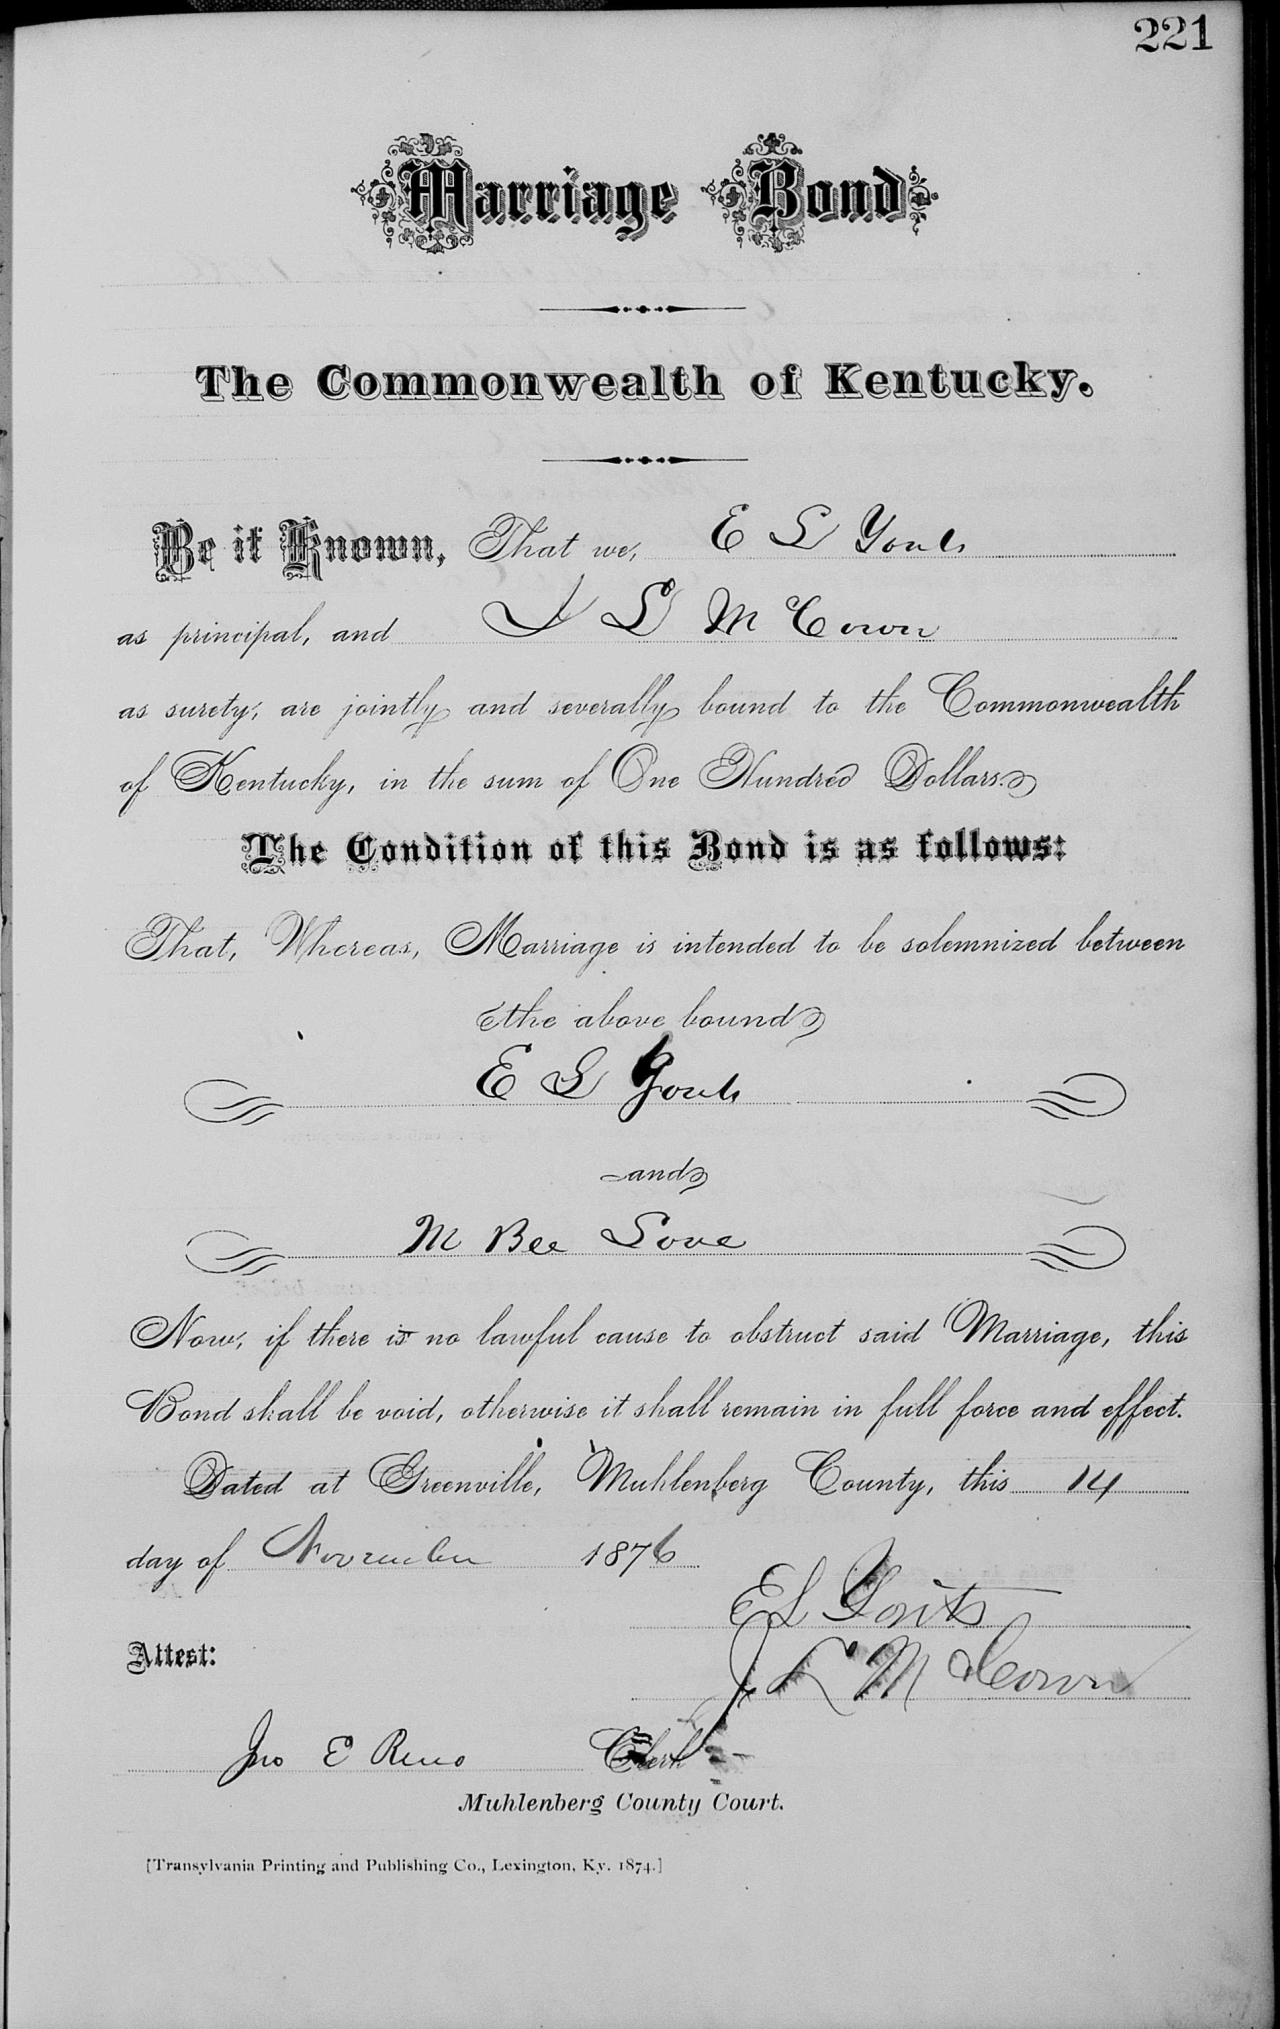 221
Marriage Bond
The Commonwealth of Kentucky.
Be it Known, That we, E L Yonts
as principal, and J L McCown
as surety, are jointly and severally bound to the Commonwealth
of Kentucky, in the sum of One Hundred Dollars.
The Condition of this Bond is as follows:
That, Whereas, Marriage is intended to be solemnized between
the above bound
E L Yonts
and
M Bee Love
Now, if there is no lawful cause to obstruct said Marriage, this
Bond shall be void, otherwise it shall remain in full force and effect.
Dated at Greenville, Muhlenberg County, this 14
day of November 1876
E L Yonts
Attest:
J L McCown
Jno E Reno Clerk
Muhlenberg County Court.
[Transylvania Printing and Publishing Co., Lexington, Ky. 1874.]